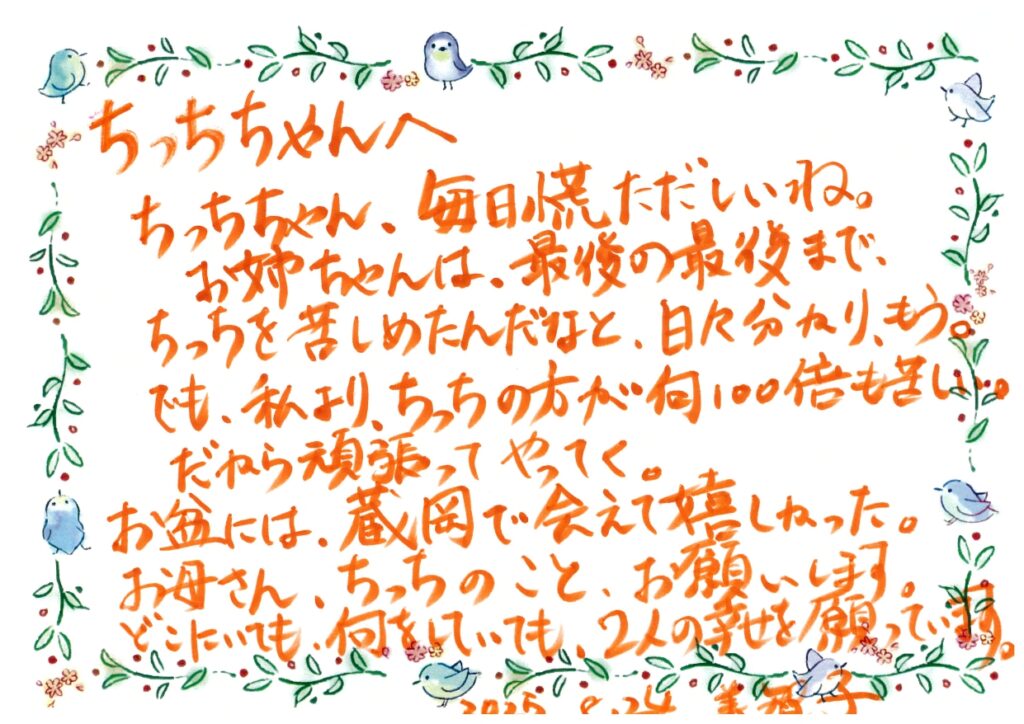 ちっちちゃんへ
ちっちちゃん、毎日慌ただしいね。
お姉ちゃんは、最後の最後まで、
ちっちを苦しめたんだなと、日々分かり、もう。
でも、私より、ちっちの方が何100倍も苦しい。
だから頑張ってやってく。
お盆には、蔵岡で会えて嬉しかった。
お母さん、ちっちのこと、お願いします。
どこにいても、何をしていても、2人の幸せを願っています。
2025 8.24 美 子